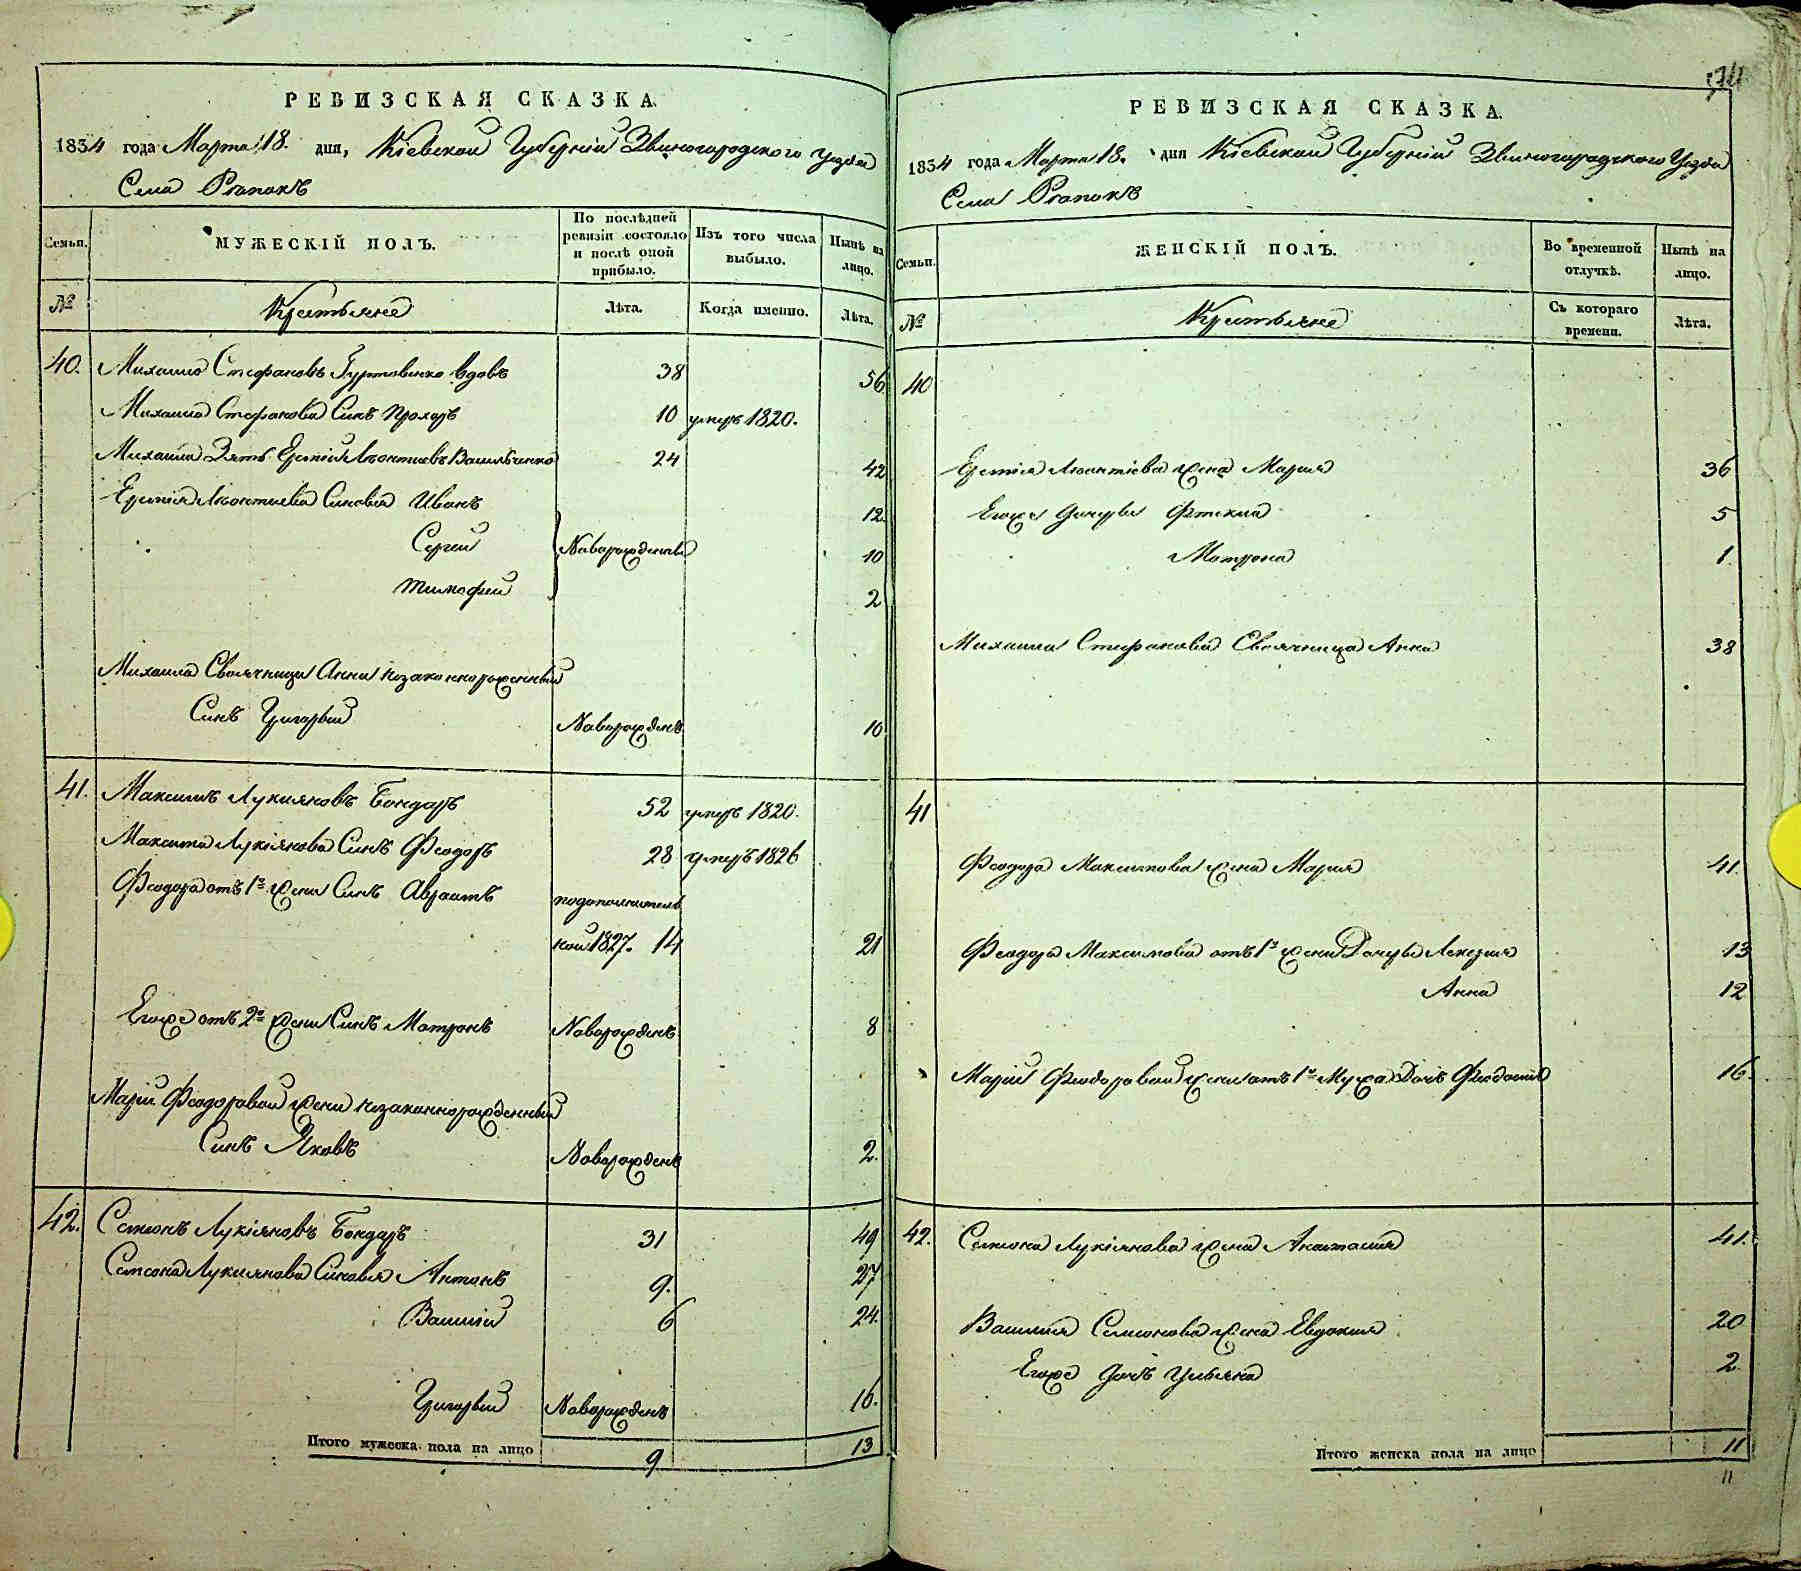 РЕВИЗСКАЯ СКАЗКА.
1834 года Марта 18. дня, Кіевской Губерніи Звиногородского Уезда
Села Рыпокъ
Семьи.
МУЖЕСКІЙ ПОЛЪ.
По послѣдней ревизіи состояло и послѣ оной прибыло.
Изъ того числа выбыло.
Нынѣ на лицо.
№
Крестьяне
Лѣта.
Когда именно.
Лѣта.
40. Михаило Стефановъ Гуртовенко вдовъ 38 56
Михаила Стефанова Синъ Прохоръ 10 умеръ 1820.
Михаила Зять Ермій Леонтіевъ Васильченко 24 42
Ермія Леонтиева Синовья Иванъ 12.
Сергей Новорожденны 10
Тимофей 2
Михаила Своячници Анни незаконнорожденный
Синъ Григорій Новорожденъ 10
41. Максимъ Лукияновъ Бондаръ 52 умеръ 1820.
Максима Лукіянова Синъ Феодоръ 28 умеръ 1826
Феодора отъ 1й жени Синъ Авраамъ подополнитель
ной 1827. 14 21
Егоже отъ 2й жени Синъ Матронъ Новорожденъ 8
Маріи Феодоровой жени незаконнорожденный
Синъ Яковъ Новорожденъ 2.
42. Семионъ Лукіяновъ Бондаръ 31 49
Семиона Лукиянова Синовья Антонъ 9. 27
Василій 6 24.
Григорій Новорожденъ 16.
Итого мужеска пола на лицо 9 13
РЕВИЗСКАЯ СКАЗКА.
1834 года Марта 18. дня Кіевской Губерніи Звиногородского Уезда
Села Рыпокъ
Семьи.
ЖЕНСКІЙ ПОЛЪ.
Во временной отлучкѣ.
Нынѣ на лицо.
№
Крестьяне
Съ котораго времени.
Лѣта.
40
Ермія Леонтіева жена Мария 36
Егоже Дочери Фтекла 5
Матрона 1
Михаила Стефанова Своячница Анна 38
41
Феодора Максимова жена Мария 41.
Феодора Максимова отъ 1й жени Дочеры 13
Анна 12
Маріи Феодоровой жени отъ 1го Мужа Дочъ Феодосия 16.
42. Семиона Лукіянова жена Анастасия 41.
Василия Семионова жена Евдокия 20
Егоже Дочъ Ульяна 2.
Итого женска пола на лицо 11
11